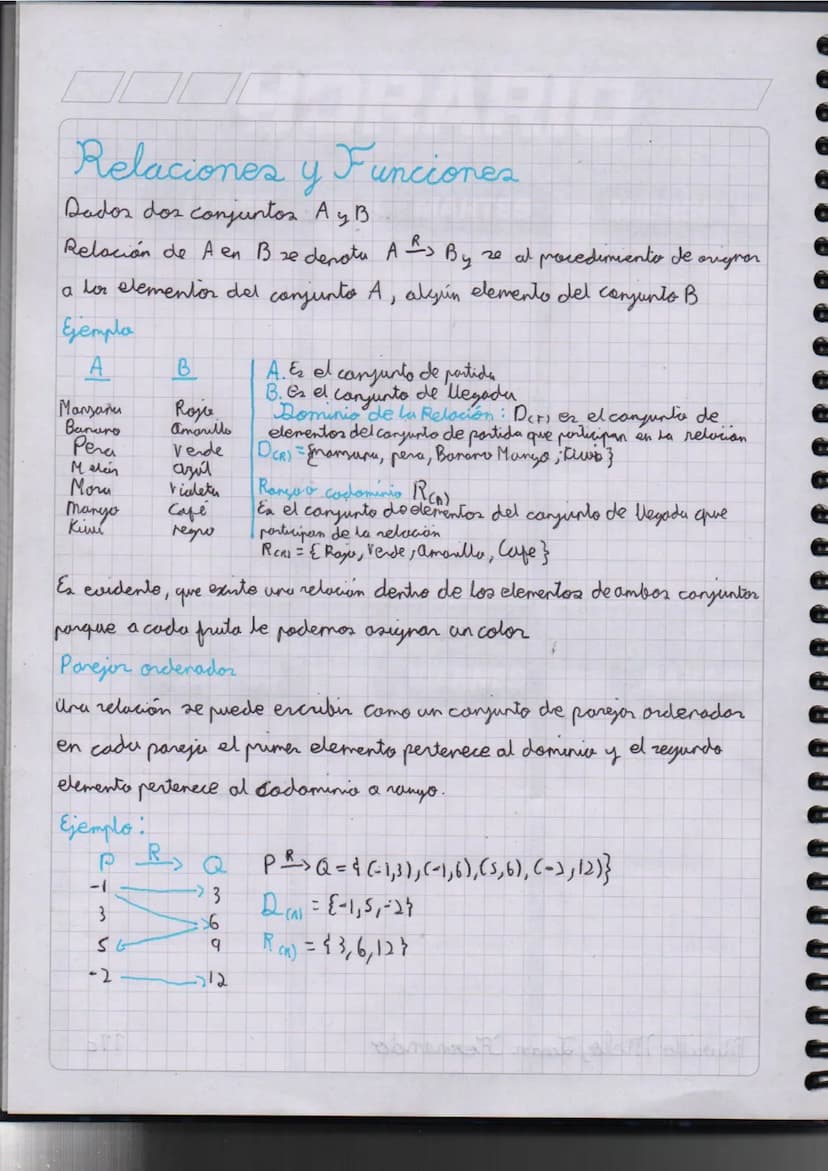 Relaciones y Funciones
Dados dos conjuntos A y B
Relación de A en B se denota A R→ B y se al procedimiento de asignar
a los elementos del conjunto A, algún elemento del conjunto B
Ejemplo
A B
Manzana Roja
Banano Amarillo
Pera Verde
Melón azúl
Mora violeta
Mango Café
Kiwi negro
A. Es el conjunto de partida
B. es el conjunto de llegada
Dominio de la Relación: D(r) es el conjunto de
elementos del conjunto de partida que participan en la relación
D(R) = {manzana, pera, Banano Mango, Kiwi}
Rango o codominio R(R)
Es el conjunto de elementos del conjunto de llegada que
participan de la relación
R(R) = {Rojo, Verde, amarillo, Cafe}
Es evidente, que existe una relación dentro de los elementos de ambos conjuntos
porque a cada fruta le podemos asignar un color
Parejas ordenadas
Una relación se puede escribir como un conjunto de parejas ordenadas
en cada pareja el primer elemento pertenece al dominio y el segundo
elemento pertenece al codominio o rango.
Ejemplo:
P R→ Q
-1 3
3 6
5 9
-2 12
P R→ Q = {(-1,3), (-1,6), (5,6), (-2,12)}
D(R) = {-1,5,-2}
R(R) = {3,6,12}